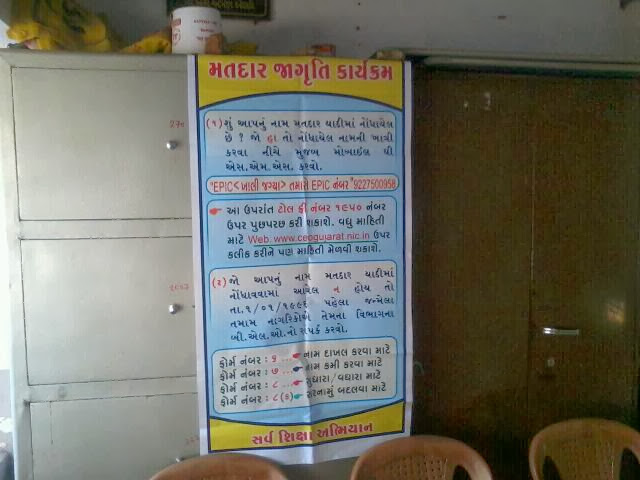 મતદાર જાગૃતિ કાર્યક્રમ
(૧) શું આપનું નામ મતદાર યાદીમાં નોંધાયેલ
છે ? જો હા તો નોંધાયેલ નામની ખાત્રી
કરવા નીચે મુજબ મોબાઈલ થી
એસ.એમ.એસ. કરવો.
"EPIC< ખાલી જગ્યા> તમારો EPIC નંબર "9227500958
આ ઉપરાંત ટોલ ફ્રી નંબર ૧૯૫૦ નંબર
ઉપર પુછપરછ કરી શકાશે. વધુ માહિતી
માટે Web. www.ceogujarat.nic.in ઉપર
કલીક કરીને પણ માહિતી મેળવી શકાશે.
(૨) જો આપનું નામ મતદાર યાદીમાં
નોંધાવવામાં આવેલ ન હોય તો
તા.૧/૦૧/૧૯૯૬ પહેલા જન્મેલા
તમામ નાગરિકોએ તેમના વિભાગના
બી.એલ.ઓ.નો સંપર્ક કરવો.
ફોર્મ નંબર : ૬ ... નામ દાખલ કરવા માટે
ફોર્મ નંબર : ૭ ... નામ કમી કરવા માટે
ફોર્મ નંબર : ૮ ... સુધારા/વધારા માટે
ફોર્મ નંબર : ૮(ક) સરનામું બદલવા માટે
સર્વ શિક્ષા અભિયાન